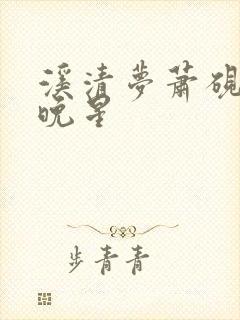 溪清梦萧砚
晚星
步青青